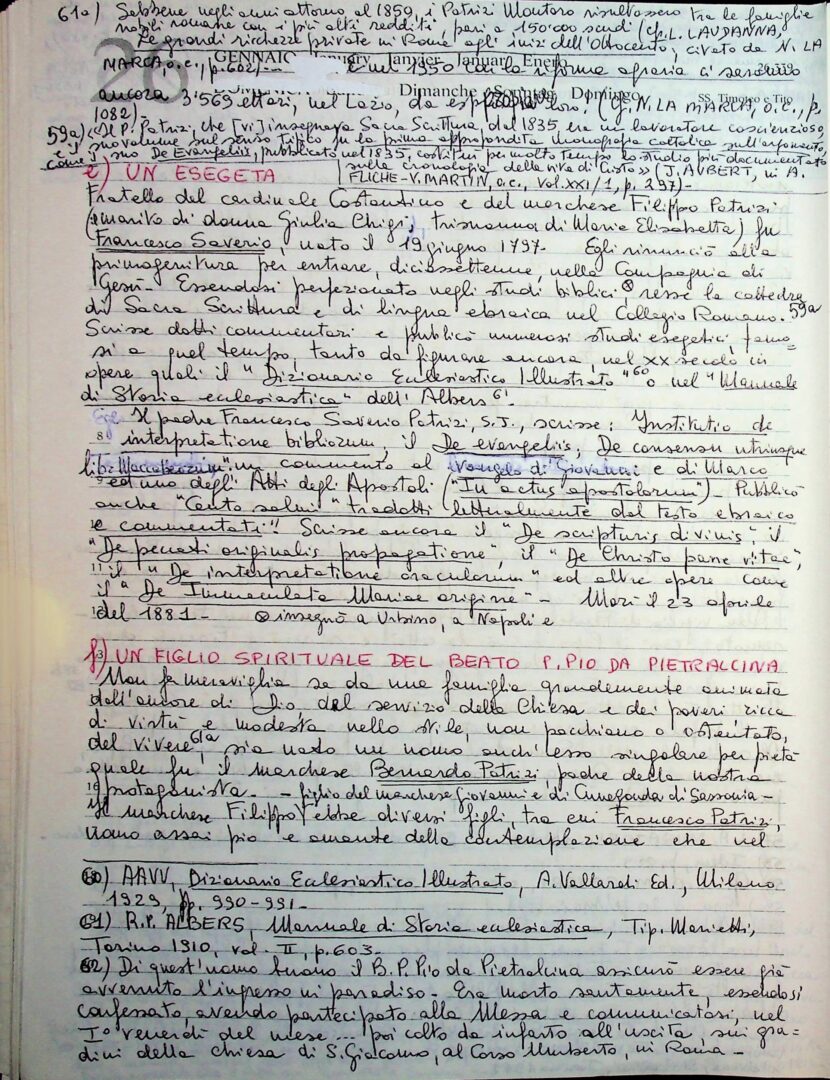 61a) Sebbene negli anni attorno al 1859, i Patrizi Montoro risultassero tra le famiglie
nobili romane con i più alti redditi, pari a 150.000 scudi (cfr. L. LAUDANNA,
Le grandi ricchezze private in Roma agli inizi dell'Ottocento, citato da N. LA
MARCA, o.c., p. 602)
26 GENNAIO January Janvier Januar Enero
e nel 1950 con la riforma agraria ci saranno
Dimanche Sonntag Domingo
SS. Timoteo e Tito
ancora 3.569 ettari, nel Lazio, da espropriar loro. (Cfr. N. LA MARCA, o.c., p.
1082).
59a) «Il P. Patrizi, che [vi] insegnava Sacra Scrittura dal 1835, era un lavoratore coscienzioso,
e il suo volume sul senso tipico fu la prima approfondita monografia cattolica sull'argomento,
come il suo De Evangeliis, pubblicato nel 1835, costituì per molto tempo lo studio più documentato
sulla cronologia della vita di Cristo» (J. AUBERT, in A.
FLICHE-V. MARTIN, o.c., vol. XXI/1, p. 297)-
e) UN ESEGETA
Fratello del cardinale Costantino e del marchese Filippo Patrizi
(marito di donna Giulia Chigi, trisnonna di Maria Elisabetta) fu
Francesco Saverio, nato il 19 giugno 1797- Egli rinunciò alla
primogenitura per entrare, diciassettenne, nella Compagnia di
Gesù- Essendosi perfezionato negli studi biblici, ⊗ resse la cattedra
di Sacra Scrittura e di lingua ebraica nel Collegio Romano. 59a
Scrisse dotti commentari e publicò numerosi studi esegetici, famo=
si a quel tempo, tanto da figurare ancora, nel XX secolo in
opere quali il "Dizionario Ecclesiastico Illustrato" 60 o nel "Manuale
di Storia ecclesiastica" dell'Albers 61
Il padre Francesco Saverio Patrizi, S.J., scrisse: Institutio de
interpretatione bibliorum, il De evangeliis; De consensu utriusque
libri Maccabeorum; un commento al Vangelo di Giovanni e di Marco
ed uno degli Atti degli Apostoli ("In actus apostolorum")- Pubblicò
anche "Cento salmi" tradotti letteralmente dal testo ebraico
e commentati! Scrisse ancora il "De scripturis divinis", il
"De peccati originalis propagatione", il "De Christo pane vitae",
il "De interpretatione oraculorum" ed altre opere come
il "De Immaculata Mariae origine"- Morì il 23 aprile
del 1881- ⊗ insegnò a Urbino, a Napoli e
f) UN FIGLIO SPIRITUALE DEL BEATO P. PIO DA PIETRALCINA
Non fa meraviglia se da una famiglia grandemente animata
dall'amore di Dio, dal servizio della Chiesa e dei poveri ricca
di virtù e modesta nello stile, non pacchiano o ostentato,
del vivere 61a, sia nato un uomo anch'esso singolare per pietà
quale fu il marchese Bernardo Patrizi padre della nostra
protagonista. - figlio del marchese Giovanni e di Cunegonda di Sassonia-
Il marchese Filippo ebbe diversi figli, tra cui Francesco Patrizi,
uomo assai pio e amante della contemplazione che nel
60) AAVV, Dizionario Ecclesiastico Illustrato, A. Vallardi Ed., Milano
1929, pp. 990-991-
61) R.P. ALBERS, Manuale di Storia ecclesiastica, Tip. Marietti,
Torino 1910, vol. II, p. 603-
62) Di quest'uomo buono il B. P. Pio da Pietralcina assicurò essere già
avvenuto l'ingresso in paradiso- Era morto santamente, essendosi
confessato, avendo partecipato alla Messa e comunicatosi, nel
I° venerdì del mese... poi colto da infarto all'uscita, sui gra=
dini della chiesa di S. Giacomo, al Corso Umberto, in Roma-